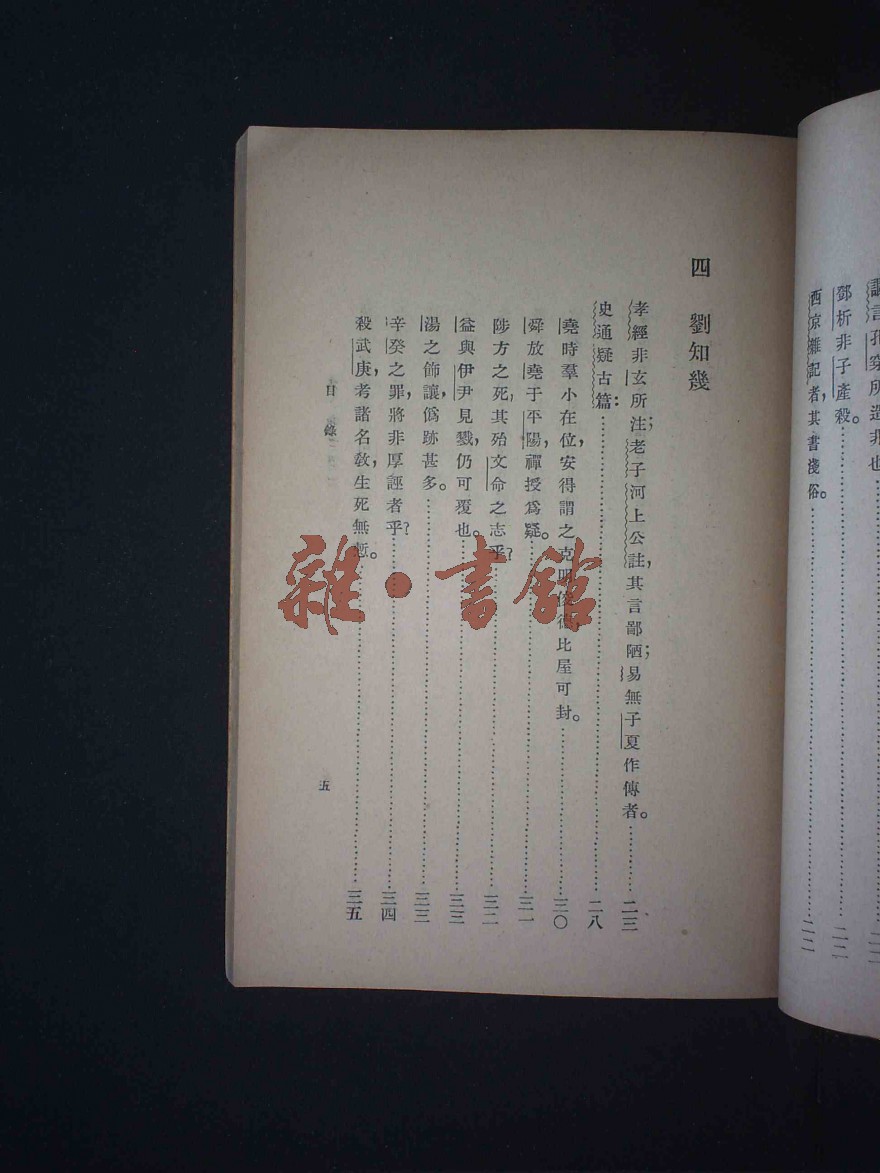 調言孔穿所造非也
鄧析非子產殺。……二二
西京雜記者，其書淺俗。……二二
四　劉知幾
孝經非玄所注；老子河上公註，其言鄙陋；易無子夏作傳者。……二三
史通疑古篇：……二八
堯時羣小在位，安得謂之克明俊德，比屋可封。……三〇
舜放堯于平陽，禪授爲疑。……三一
陟方之死，其殆文命之志乎？……三二
益與伊尹見戮，仍可覆也。……三三
湯之飾讓，僞跡甚多。……三三
辛癸之罪，將非厚誣者乎？……三四
殺武庚，考諸名教，生死無慙。……三五
目錄
五
雜·書館